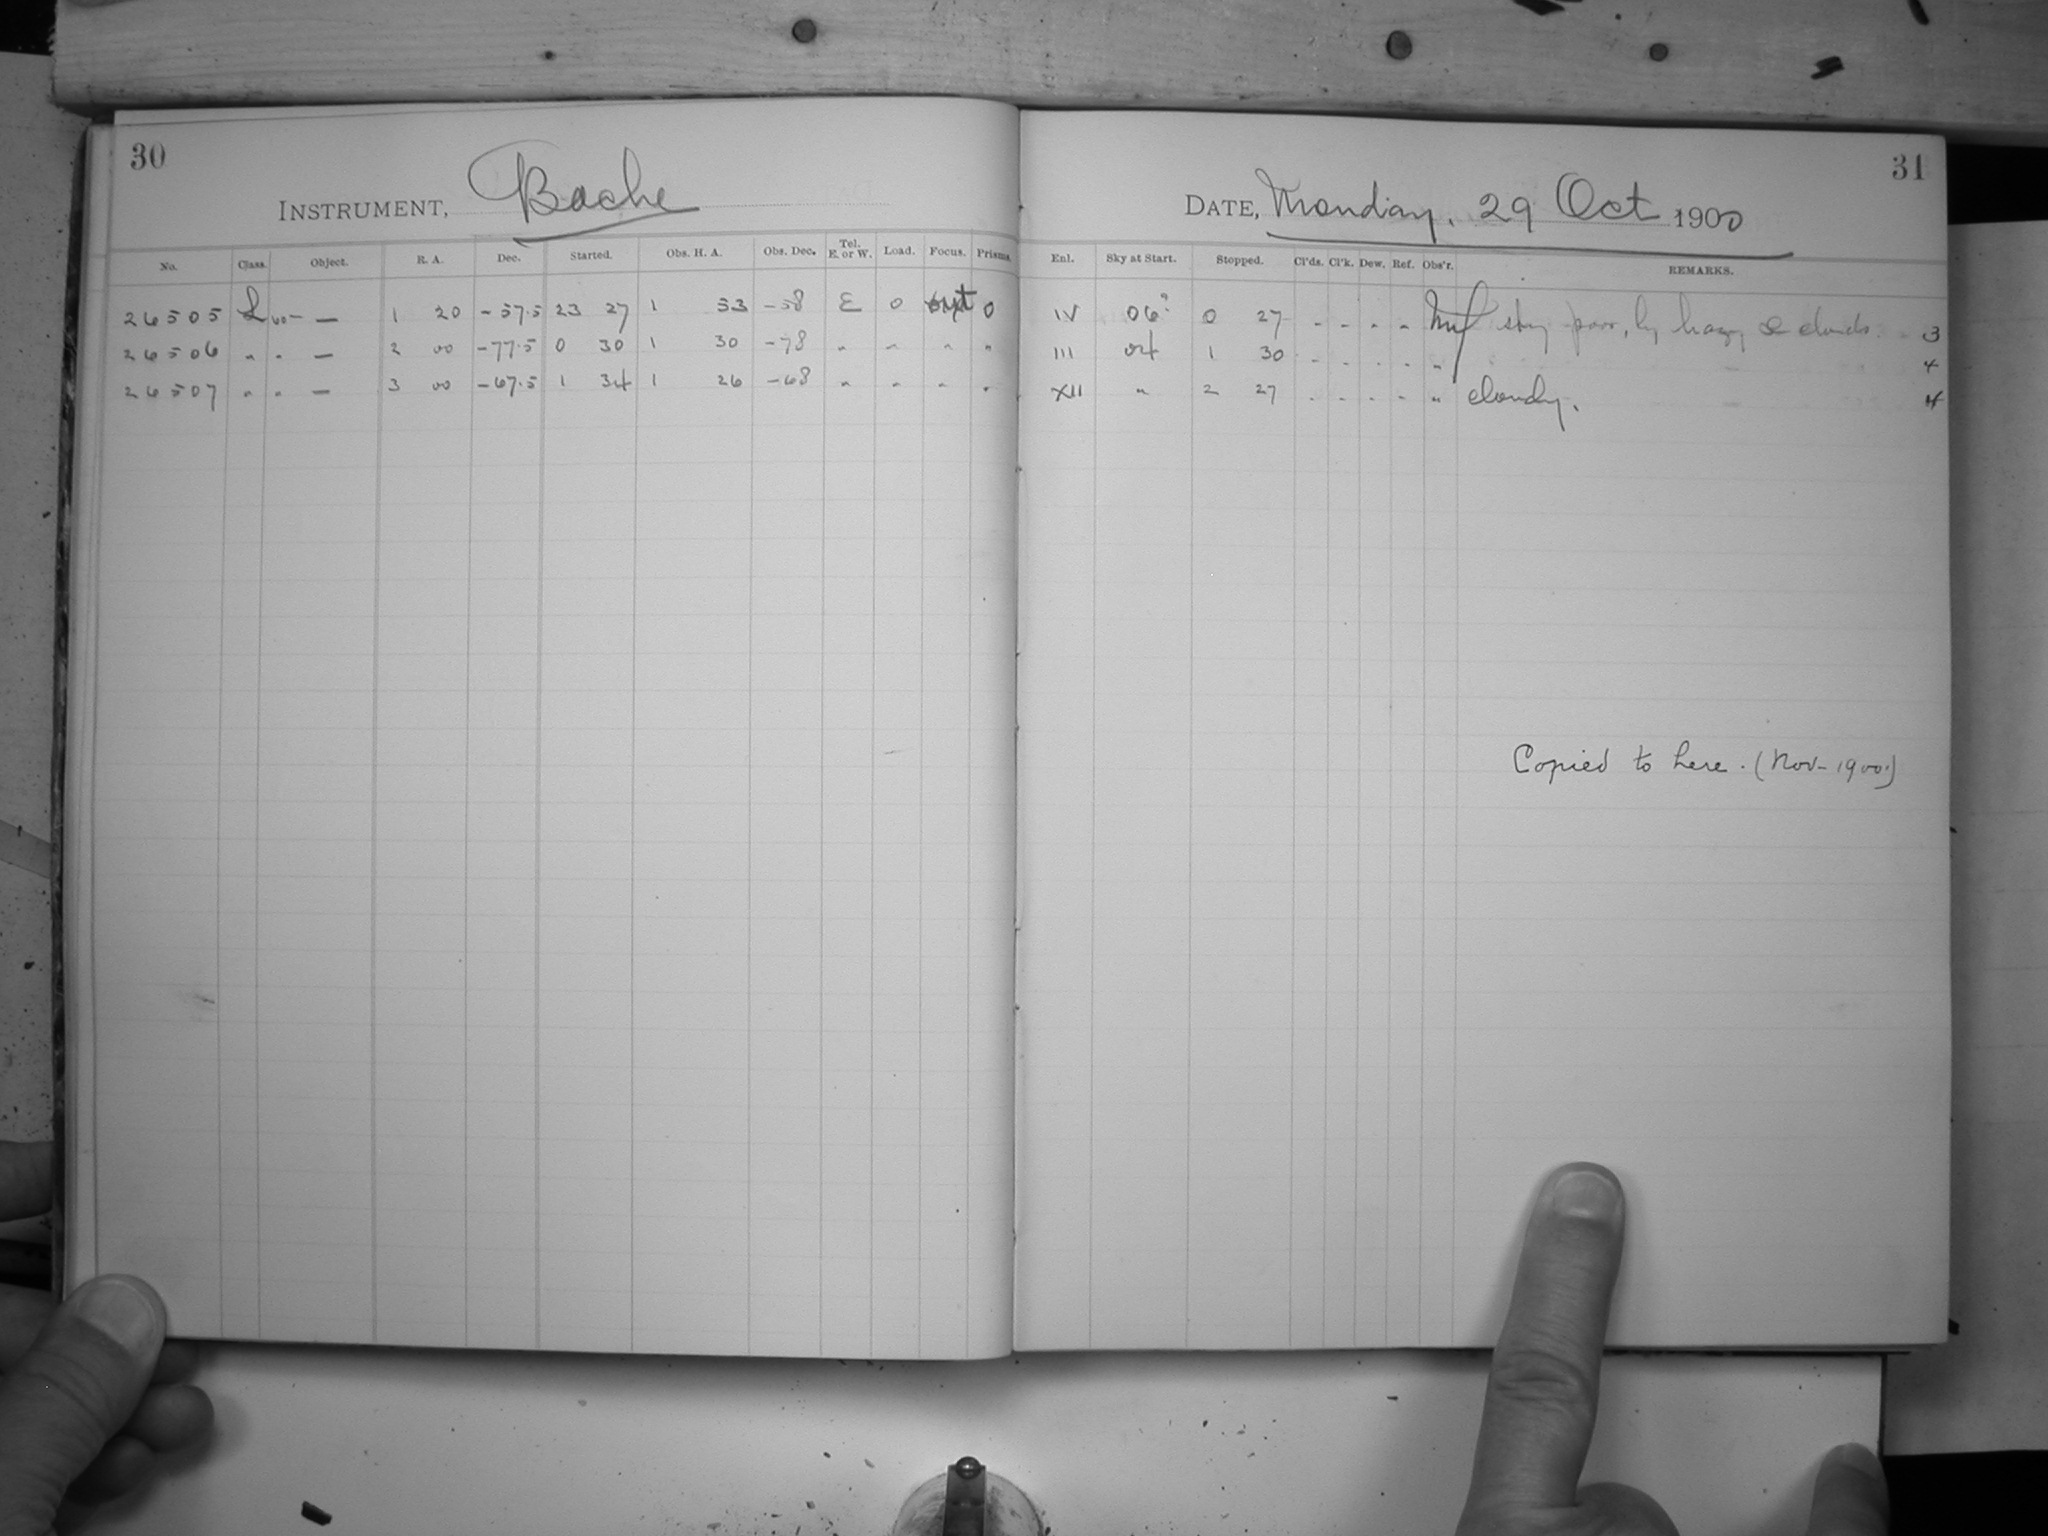 30
INSTRUMENT, Bache
No. Class. Object. R. A. Dec. Started. Obs. H. A. Obs. Dec. Tel. E. or W. Load. Focus. Prisms.
26505 L 60– — 1 20 –57.5 23 27 1 53 –58 E 0 0
26506 " " — 2 00 –77.5 0 30 1 30 –78 " " " "
26507 " " — 3 00 –67.5 1 34 1 26 –68 " " " "
31
DATE, Monday, 29 Oct 1900
Enl. Sky at Start. Stopped. Cl'ds. Cl'k. Dew. Ref. Obs'r. REMARKS.
IV 06" 0 27 - - - - sky poor, hazy & clouds. 3
III 04 1 30 - - - - " 4
XII " 2 27 - - - - " cloudy. 4
Copied to here. (Nov– 1900.)